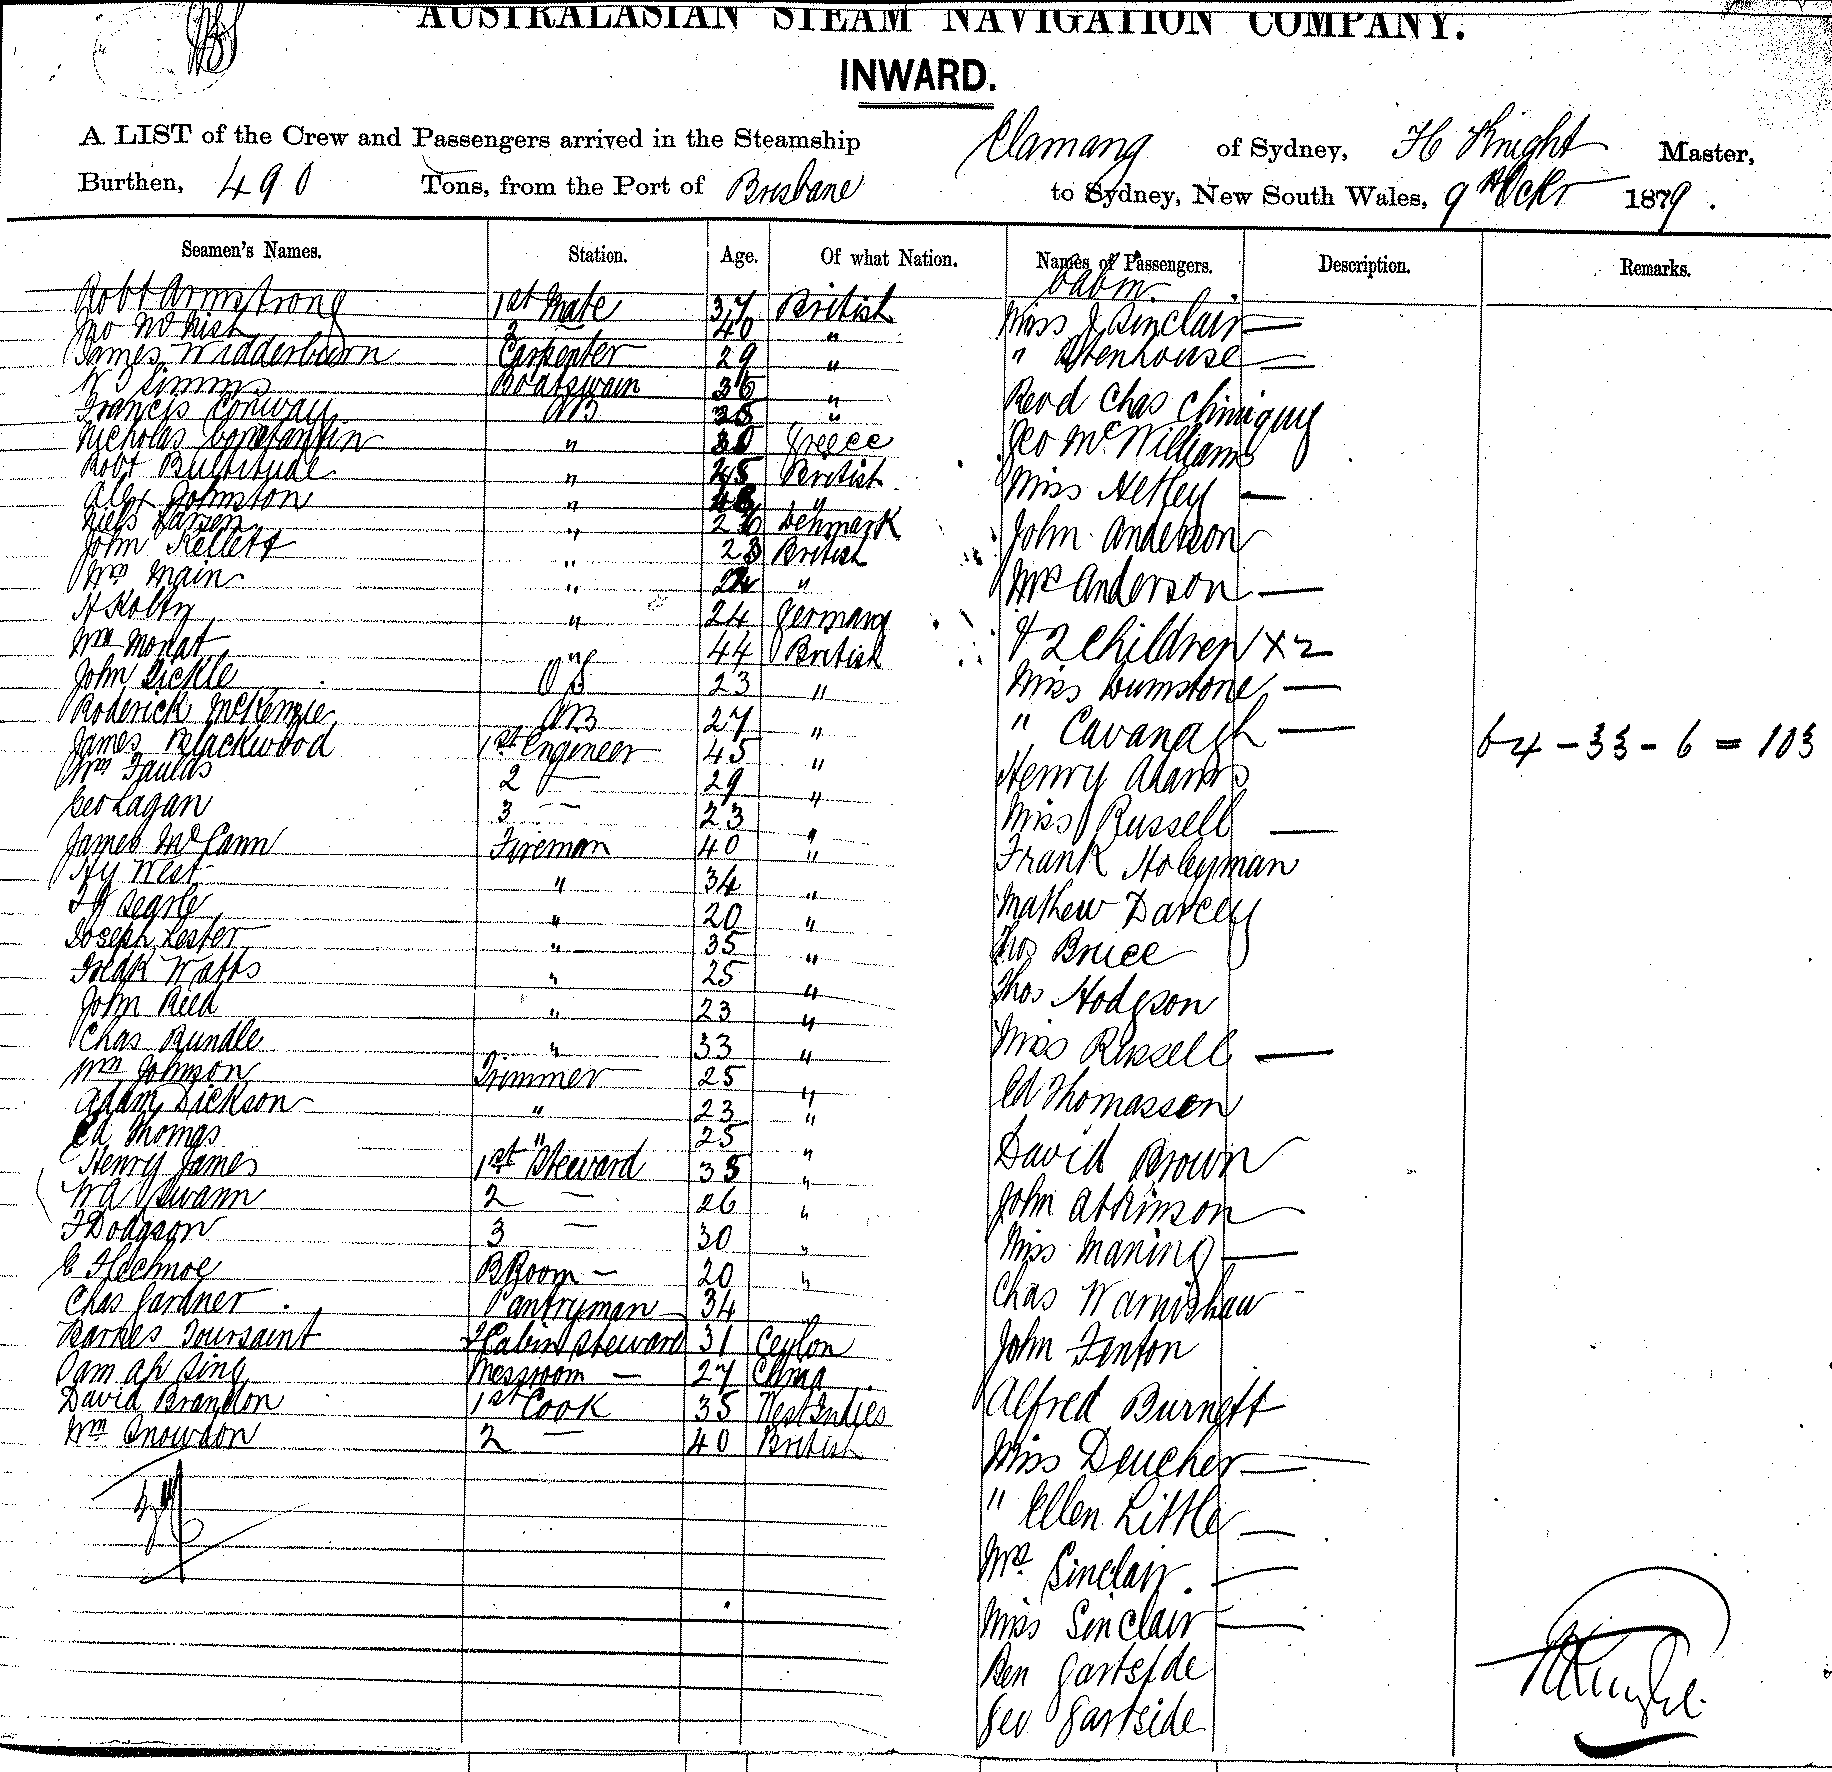 AUSTRALASIAN STEAM NAVIGATION COMPANY.
INWARD.
A LIST of the Crew and Passengers arrived in the Steamship Elamang of Sydney, H Knight Master,
Burthen, 490 Tons, from the Port of Brisbane to Sydney, New South Wales, 9th Octr 1879.
Seamen's Names. Station. Age. Of what Nation. Names of Passengers. Description. Remarks.
Cabin
Robt Armstrong 1st Mate 37 British Miss J Sinclair —
Geo McNish 2 40 " " Stenhouse —
James Widderburn Carpenter 29 "
W Simms Boatswain 36 " Revd Chas Chiniquy
Francis Conway AB 25 "
Nicholas Constantin " 30 Greece Geo McWilliams
Robt Bultitude " 25 British Miss Netley —
Alex Johnston " "
Niels Larsen " 26 Denmark John Anderson
John Kellett " 23 British
Wm Main " 24 " Mrs Anderson —
H Kolty " 24 Germany & 2 Children x 2
Wm Monat " 44 British
John Sickle OS 23 " Miss Dumstone —
Roderick McKenzie AB 27 " " Cavanagh —
James Blackwood 1st Engineer 45 " 64 - 33 - 6 = 103
Wm Faulds 2 — 29 " Henry Adams
Geo Lagan 3 — 23 " Miss Russell —
James McCann Fireman 40 " Frank Holeyman
Hy West " 34 "
Searle " 20 " Mathew Darcey
Joseph Lester " 35 " Thos Bruce
Fredk Watts " 25 "
John Reed " 23 " Thos Hodgson
Chas Rundle " 33 " Miss Russell —
Wm Johnson Trimmer 25 " Ed Thomassen
Adam Dickson " 23 "
Ed Thomas " 25 " David Brown
Henry James 1st Steward 35 "
WA Swann 2 — 26 " John Atkinson
F Dodgson 3 — 30 " Miss Maning —
C Flechnoe B Room — 20 " Chas Warnishaw
Chas Gardner Pantryman 34
Barnes Toursaint F Cabin Steward 31 Ceylon John Fenton
Sam Ah Sing Messroom — 27 China
David Brandon 1st Cook 35 West Indies Alfred Burnett
Wm Snowdon 2 — 40 British Miss Deucher —
" Ellen Little —
Mrs Sinclair. —
Miss Sinclair —
Ben Gartside
Geo Gartside
HKnight